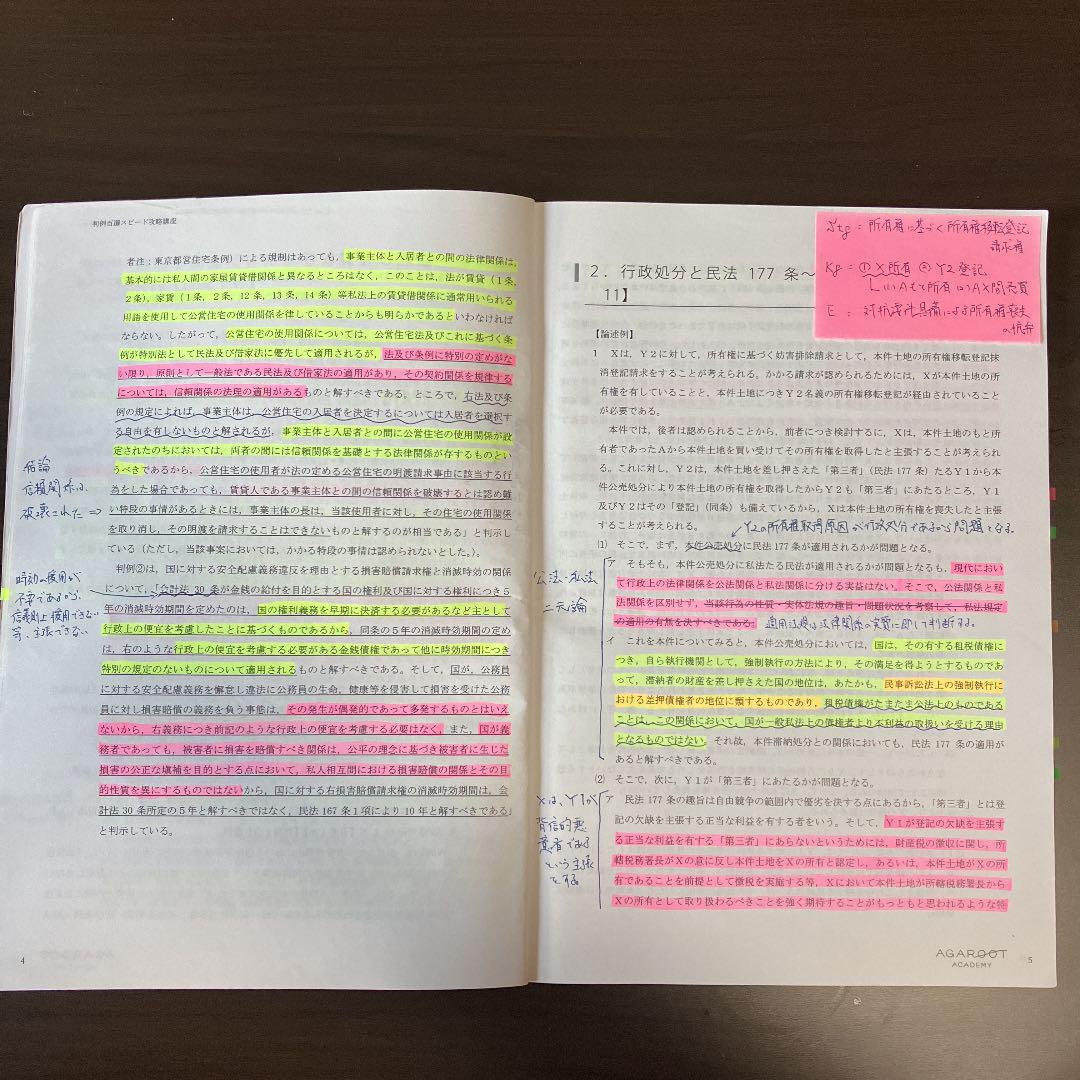 判例百選スピード攻略講座
者注：東京都営住宅条例）による規制はあっても，事業主体と入居者との間の法律関係は，
基本的には私人間の家屋賃貸借関係と異なるところはなく，このことは，法が賃貸（1条，
2条），家賃（1条，2条，12条，13条，14条）等私法上の賃貸借関係に通常用いられる
用語を使用して公営住宅の使用関係を律していることからも明らかであるといわなければ
ならない。したがって，公営住宅の使用関係については，公営住宅法及びこれに基づく条
例が特別法として民法及び借家法に優先して適用されるが，法及び条例に特別の定めがな
い限り，原則として一般法である民法及び借家法の適用があり，その契約関係を規律する
については，信頼関係の法理の適用があるものと解すべきである。ところで，右法及び条
例の規定によれば，事業主体は，公営住宅の入居者を決定するについては入居者を選択す
る自由を有しないものと解されるが，事業主体と入居者との間に公営住宅の使用関係が設
定されたのちにおいては，両者の間には信頼関係を基礎とする法律関係が存するものとい
うべきであるから，公営住宅の使用者が法の定める公営住宅の明渡請求事由に該当する行
為をした場合であっても，賃貸人である事業主体との間の信頼関係を破壊するとは認め難
い特段の事情があるときには，事業主体の長は，当該使用者に対し，その住宅の使用関係
を取り消し，その明渡を請求することはできないものと解するのが相当である」と判示し
ている（ただし，当該事案においては，かかる特段の事情は認められないとした。）。
判例②は，国に対する安全配慮義務違反を理由とする損害賠償請求権と消滅時効の関係
について，「会計法30条が金銭の給付を目的とする国の権利及び国に対する権利につき5
年の消滅時効期間を定めたのは，国の権利義務を早期に決済する必要があるなど主として
行政上の便宜を考慮したことに基づくものであるから，同条の5年の消滅時効期間の定め
は，右のような行政上の便宜を考慮する必要がある金銭債権であって他に時効期間につき
特別の規定のないものについて適用されるものと解すべきである。そして，国が，公務員
に対する安全配慮義務を懈怠し違法に公務員の生命，健康等を侵害して損害を受けた公務
員に対し損害賠償の義務を負う事態は，その発生が偶発的であって多発するものとはいえ
ないから，右義務につき前記のような行政上の便宜を考慮する必要はなく，また，国が義
務者であっても，被害者に損害を賠償すべき関係は，公平の理念に基づき被害者に生じた
損害の公正な填補を目的とする点において，私人相互間における損害賠償の関係とその目
的性質を異にするものではないから，国に対する右損害賠償請求権の消滅時効期間は，会
計法30条所定の5年と解すべきではなく，民法167条1項により10年と解すべきである」
と判示している。
結論
信頼関係は、
破壊された⇒
時効の援用が
不要であるから、
信義則上援用できない
等、主張できない
4
Stg = 所有権に基づく所有権移転登記
請求権
Kg = ① X所有 ② Y2登記
E : 対抗要件具備による所有権喪失
の抗弁
2．行政処分と民法177条～
11】
【論述例】
1 Xは，Y2に対して，所有権に基づく妨害排除請求として，本件土地の所有権移転登記抹
消登記請求をすることが考えられる。かかる請求が認められるためには，Xが本件土地の所
有権を有していることと，本件土地につきY2名義の所有権移転登記が経由されていること
が必要である。
本件では，後者は認められることから，前者につき検討するに，Xは，本件土地のもと所
有者であったAから本件土地を買い受けてその所有権を取得したと主張することが考えられ
る。これに対し，Y2は，本件土地を差し押さえた「第三者」（民法177条）たるY1から本
件公売処分により本件土地の所有権を取得したからY2も「第三者」にあたるところ，Y1
及びY2はその「登記」（同条）も備えているから，Xは本件土地の所有権を喪失したと主張
することが考えられる。
Y2の所有権取得原因が行政処分であるから問題となる。
(1) そこで，まず，本件公売処分に民法177条が適用されるかが問題となる。
公法・私法
二元論
ア そもそも，本件公売処分に私法たる民法が適用されるかが問題となるも，現代にお
いて行政上の法律関係を公法関係と私法関係に分ける実益はない。そこで，公法関係と私
法関係を区別せず，当該行為の性質・実体法規の趣旨・問題状況を考察して，私法規定
の適用の有無を決すべきである。適用法規は法律関係の実質に即して判断する。
イ これを本件についてみると，本件公売処分においては，国は，その有する租税債権に
つき，自ら執行機関として，強制執行の方法により，その満足を得ようとするものであ
って，滞納者の財産を差し押さえた国の地位は，あたかも，民事訴訟法上の強制執行に
おける差押債権者の地位に類するものであり，租税債権がたまたま公法上のものである
ことは，この関係において，国が一般私法上の債権者より不利益の取扱いを受ける理由
となるものではない。それ故，本件滞納処分との関係においても，民法177条の適用が
あると解すべきである。
(2) そこで，次に，Y1が「第三者」にあたるかが問題となる。
Xは、Y1が
背信的悪
意者である
という主張
をする
ア 民法177条の趣旨は自由競争の範囲内で優劣を決する点にあるから，「第三者」とは登
記の欠缺を主張する正当な利益を有する者をいう。そして，Y1が登記の欠缺を主張す
る正当な利益を有する「第三者」にあらないというためには，財産税の徴収に関し，所
轄税務署長がXの意に反し本件土地をXの所有と認定し，あるいは，本件土地がXの所
有であることを前提として徴税を実施する等，Xにおいて本件土地が所轄税務署長から
Xの所有として取り扱わるべきことを強く期待することがもっともと思われるような特
AGAROOT
ACADEMY
5